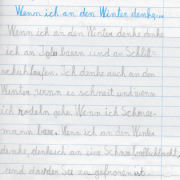 Wenn ich an den Winter denke
Wenn ich an den Winter denke denke
ich an Iglo bauen und an Schlitt-
schuhlaufen. Ich denke auch an den
Winter, wenn es schneit und wenn
ich rodeln gehe. Wenn ich Schnee-
mann baue. Wenn ich an den Winter
denke, denke ich an eine Schneeballschlacht,
und das der See zugefroren ist.